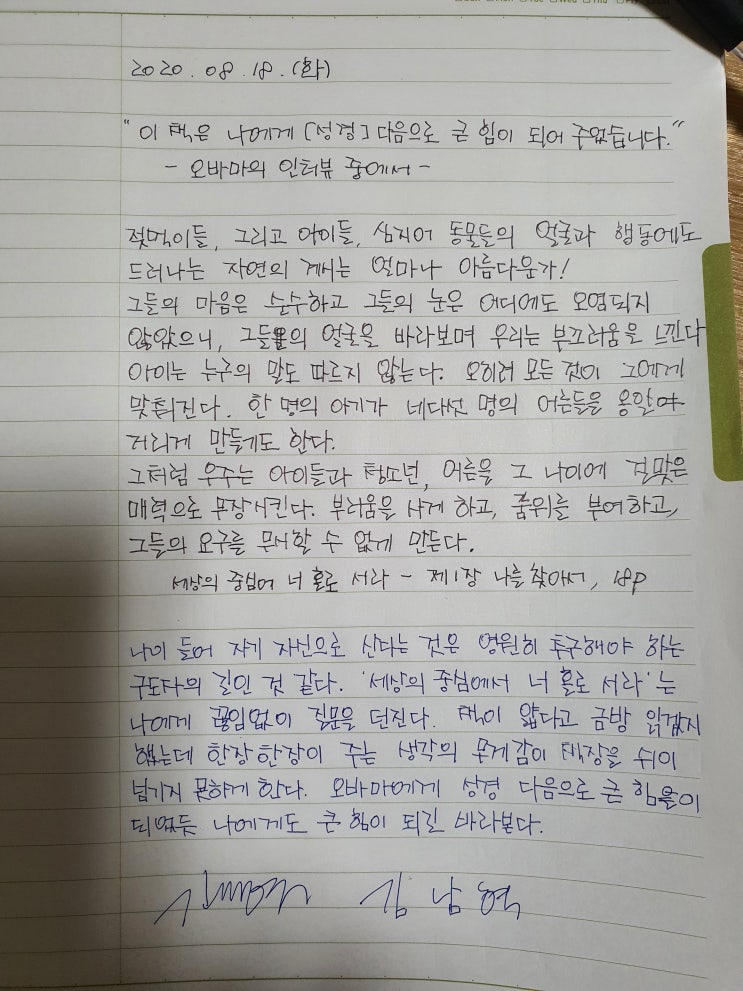 2020. 08. 18. (화)
"이 책은 나에게 [성경] 다음으로 큰 힘이 되어 주었습니다."
- 오바마의 인터뷰 중에서 -
젖먹이들, 그리고 아이들, 심지어 동물들의 얼굴과 행동에도
드러나는 자연의 계시는 얼마나 아름다운가!
그들의 마음은 순수하고 그들의 눈은 어디에도 오염되지
않았으니, 그들의 얼굴을 바라보며 우리는 부끄러움을 느낀다
아이는 누구의 말도 따르지 않는다. 오히려 모든 것이 그에게
맞춰진다. 한 명의 아기가 네다섯 명의 어른들을 옹알여
거리게 만들기도 한다.
그처럼 우주는 아이들과 청소년, 어른을 그 나이에 걸맞은
매력으로 무장시킨다. 부러움을 사게 하고, 품위를 부여하고,
그들의 요구를 무시할 수 없게 만든다.
세상의 중심에 너 홀로 서라 - 제1장 나를 찾아서, 18p
나이 들어 자기 자신으로 산다는 것은 영원히 추구해야 하는
구도자의 길인 것 같다. '세상의 중심에서 너 홀로 서라'는
나에게 끊임없이 질문을 던진다. 책이 얇다고 금방 읽겠지
했는데 한장 한장이 주는 생각의 무게감이 책장을 쉬이
넘기지 못하게 한다. 오바마에게 성경 다음으로 큰 힘이
되었듯 나에게도 큰 힘이 되길 바라본다.
김남혁